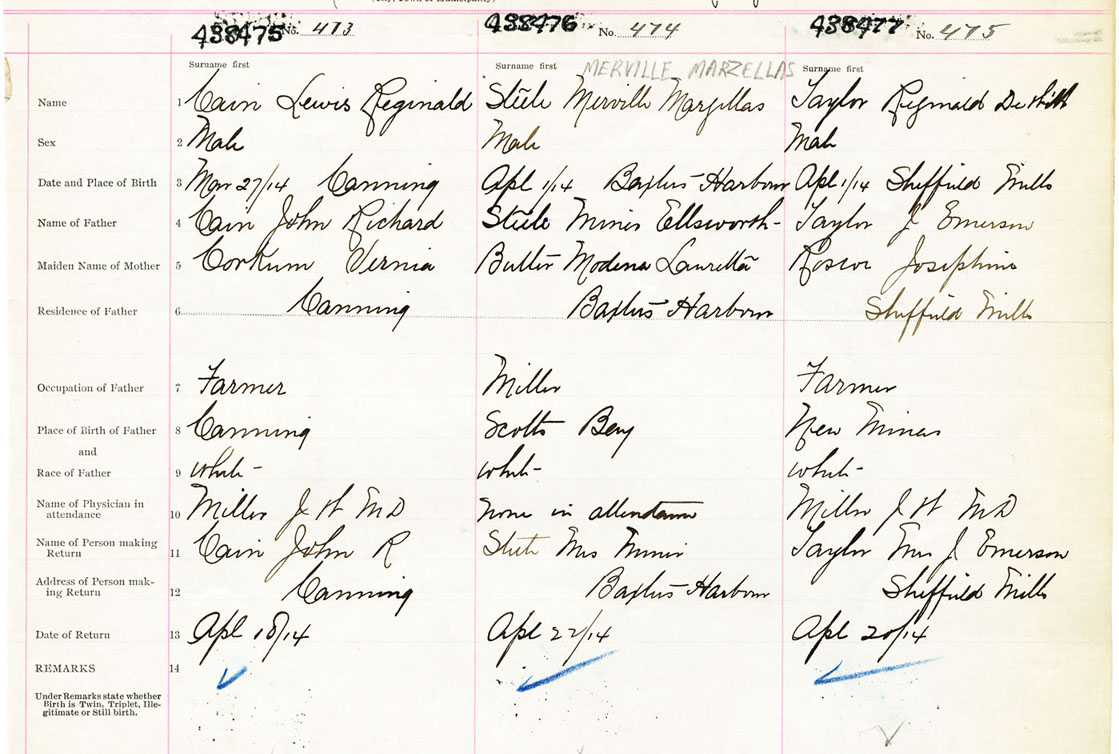 438475 No. 473 438476 No. 474 438477 No. 475
Surname first Surname first MERVILLE MARZELLAS Surname first
Name 1 Cain Lewis Reginald Steele Merville Margellas Taylor Reginald
Sex 2 Male Male Male
Date and Place of Birth 3 Mar 27/14 Canning Apl 1/14 Baxters Harbour Apl 1/14 Sheffield Mills
Name of Father 4 Cain John Richard Steele Minor Ellsworth Taylor J Emerson
Maiden Name of Mother 5 Corkum Vernia Butler Modena Lauretta Roscoe Josephine
Residence of Father 6 Canning Baxters Harbour Sheffield Mills
Occupation of Father 7 Farmer Miller Farmer
Place of Birth of Father 8 Canning Scotts Bay New Minas
and
Race of Father 9 white white white
Name of Physician in
attendance 10 Miller J W MD none in attendance Miller J W MD
Name of Person making
Return 11 Cain John R Steele Mrs Minor Taylor Mrs J Emerson
Address of Person mak-
ing Return 12 Canning Baxters Harbour Sheffield Mills
Date of Return 13 Apl 18/14 Apl 22/14 Apl 20/14
REMARKS 14
Under Remarks state whether
Birth is Twin, Triplet, Ille-
gitimate or Still birth.